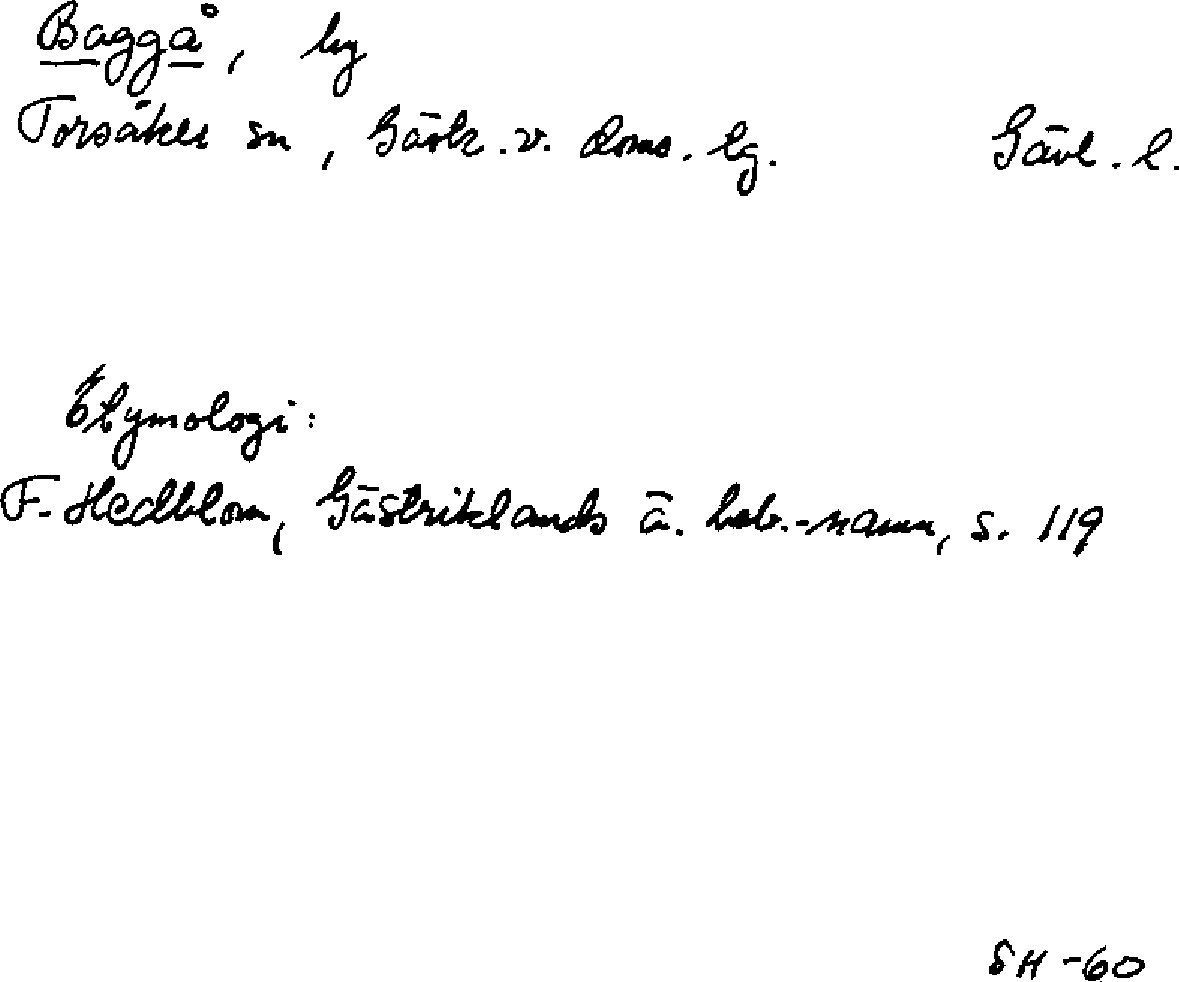 Baggå, by
Torsåker sn, Gästr. v. doms. lg. Gävl. l.
Etymologi:
F. Hedblom, Gästriklands ä. beb.-namn, s. 119
SH -60